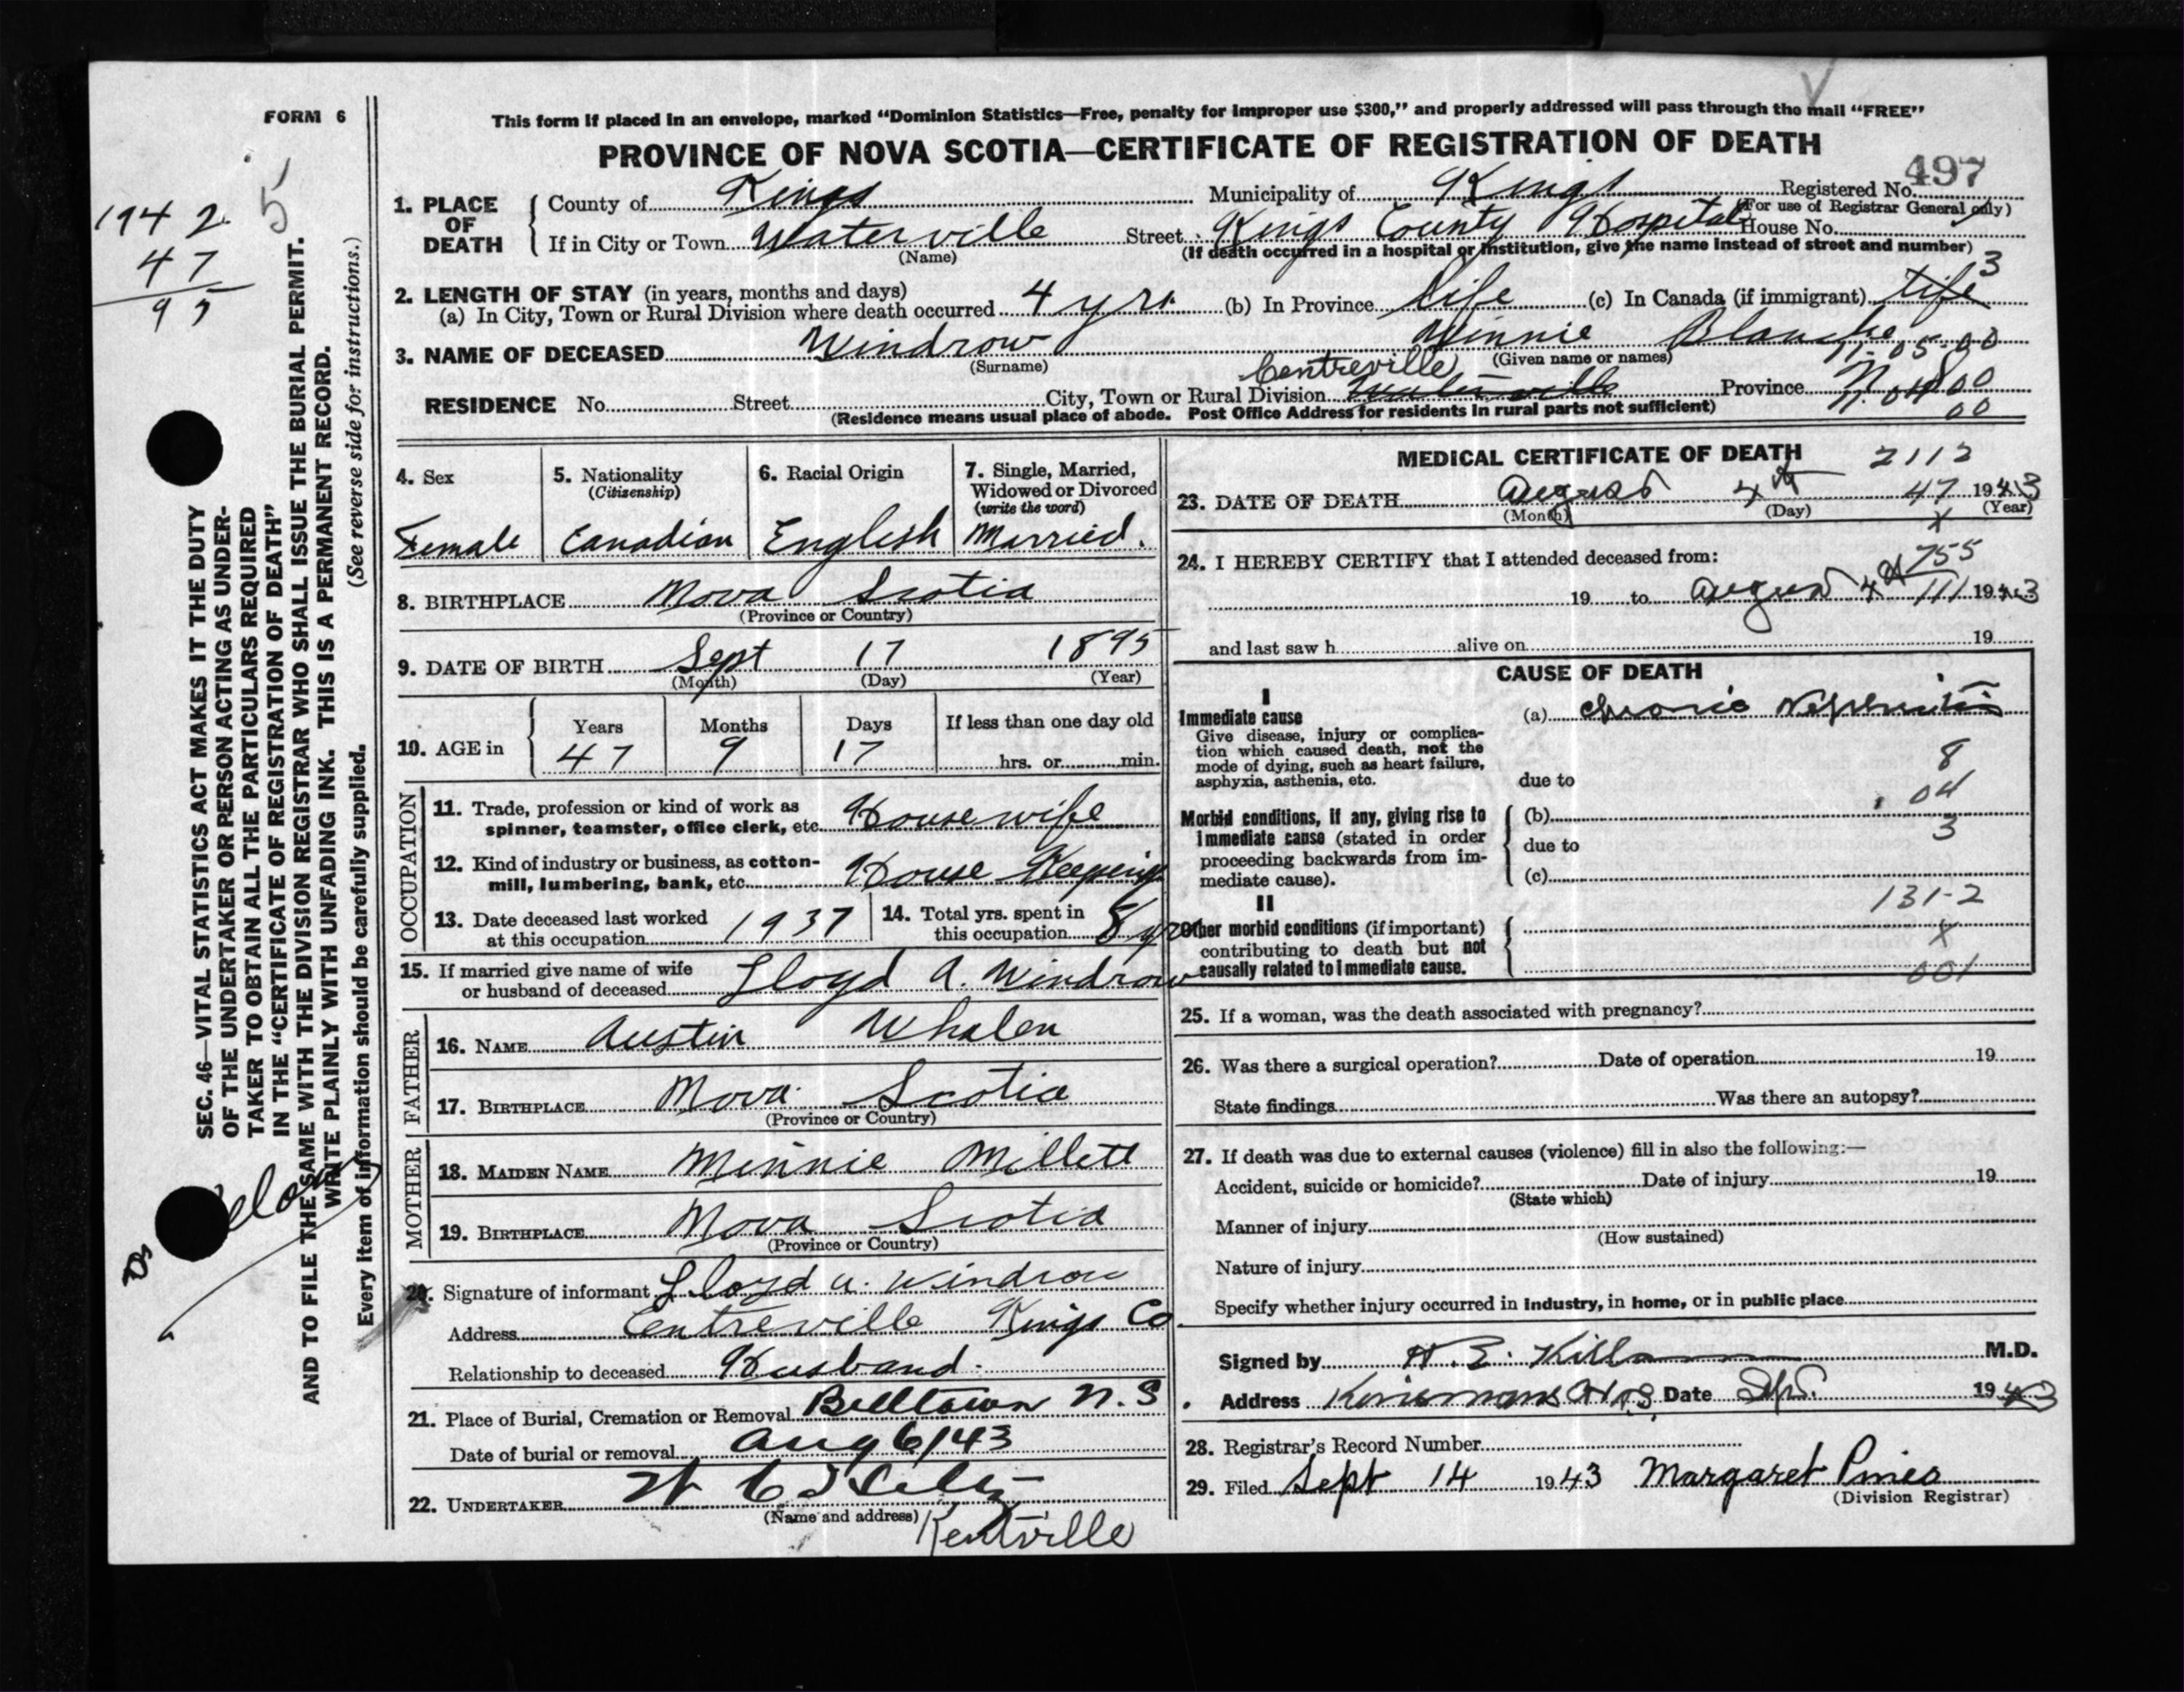 FORM 6
This form if placed in an envelope, marked “Dominion Statistics—Free, penalty for improper use $300,” and properly addressed will pass through the mail “FREE”
PROVINCE OF NOVA SCOTIA—CERTIFICATE OF REGISTRATION OF DEATH
5
1942
47
95
497
1. PLACE OF DEATH
County of Kings Municipality of Kings Registered No.
(For use of Registrar General only)
If in City or Town Waterville Street Kings County Hospital House No.
(Name) (If death occurred in a hospital or institution, give the name instead of street and number)
3
2. LENGTH OF STAY (in years, months and days)
(a) In City, Town or Rural Division where death occurred 4 yrs. (b) In Province Life (c) In Canada (if immigrant) Life
3. NAME OF DECEASED Windrow Minnie Blanche
(Surname) (Given name or names)
11 05 00
Centreville
RESIDENCE No. Street City, Town or Rural Division Waterville Province N.S.
00
(Residence means usual place of abode. Post Office Address for residents in rural parts not sufficient)
4. Sex
Female
5. Nationality
(Citizenship)
Canadian
6. Racial Origin
English
7. Single, Married,
Widowed or Divorced
(write the word)
Married.
8. BIRTHPLACE Nova Scotia
(Province or Country)
9. DATE OF BIRTH Sept 17 1895
(Month) (Day) (Year)
10. AGE in
Years Months Days If less than one day old
47 9 17 hrs. or min.
OCCUPATION
11. Trade, profession or kind of work as
spinner, teamster, office clerk, etc. Housewife
12. Kind of industry or business, as cotton-
mill, lumbering, bank, etc. House Keeping
13. Date deceased last worked
at this occupation 1937
14. Total yrs. spent in
this occupation 8 yrs
15. If married give name of wife
or husband of deceased Lloyd A. Windrow
FATHER
16. NAME Austin Whalen
17. BIRTHPLACE Nova Scotia
(Province or Country)
MOTHER
18. MAIDEN NAME Minnie Millett
19. BIRTHPLACE Nova Scotia
(Province or Country)
20. Signature of informant Lloyd A. Windrow
Address Centreville Kings Co.
Relationship to deceased Husband
21. Place of Burial, Cremation or Removal Billtown N.S.
Date of burial or removal Aug 6/43
22. UNDERTAKER
(Name and address) Kentville
MEDICAL CERTIFICATE OF DEATH
2112
23. DATE OF DEATH August 4th 47 1943
(Month) (Day) (Year)
X
24. I HEREBY CERTIFY that I attended deceased from:
755
19 to August 4 111 1943
and last saw h alive on 19
CAUSE OF DEATH
I
Immediate cause
Give disease, injury or complica-
tion which caused death, not the
mode of dying, such as heart failure,
asphyxia, asthenia, etc.
(a) Chronic Nephritis
8
due to
04
Morbid conditions, if any, giving rise to
immediate cause (stated in order
proceeding backwards from im-
mediate cause).
(b)
3
due to
(c)
131-2
II
Other morbid conditions (if important)
contributing to death but not
causally related to immediate cause.
X
001
25. If a woman, was the death associated with pregnancy?
26. Was there a surgical operation? Date of operation 19
State findings Was there an autopsy?
27. If death was due to external causes (violence) fill in also the following:—
Accident, suicide or homicide? Date of injury 19
(State which)
Manner of injury
(How sustained)
Nature of injury
Specify whether injury occurred in industry, in home, or in public place
Signed by M.D.
Address Date Sept. 1943
28. Registrar's Record Number
29. Filed Sept 14 1943 Margaret Pineo
(Division Registrar)
SEC. 46—VITAL STATISTICS ACT MAKES IT THE DUTY
OF THE UNDERTAKER OR PERSON ACTING AS UNDER-
TAKER TO OBTAIN ALL THE PARTICULARS REQUIRED
IN THE “CERTIFICATE OF REGISTRATION OF DEATH”
AND TO FILE THE SAME WITH THE DIVISION REGISTRAR WHO SHALL ISSUE THE BURIAL PERMIT.
WRITE PLAINLY WITH UNFADING INK. THIS IS A PERMANENT RECORD.
Every item of information should be carefully supplied. (See reverse side for instructions.)